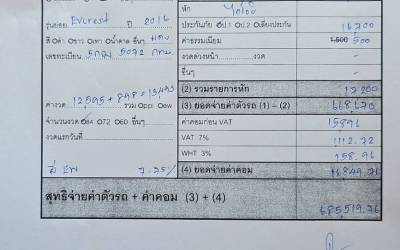 หัก
รุ่นย่อย Everest ปี 2016
ประกันภัย ป.1 ป.2 เบี้ยประกัน 16700
สี ดำ ขาว เทา น้ำตาล อื่นๆ แดง
ค่าธรรมเนียม 1,500 500
เลขทะเบียน 5กฌ 5072 กทม
งวดล่วงหน้า งวด -
อื่นๆ -
(2) รวมรายการหัก 17200
ค่างวด 12,595 + 898 = 13,493 รวม ppi ew
(3) ยอดจ่ายค่าตัวรถ (1) – (2) 668,670
จำนวนงวด 84 72 60 อื่นๆ
ค่าคอมก่อน VAT 15,891
งวดแรกวันที่
VAT 7% 1112.72
WHT 3% 158.91
7.25%
(4) ยอดจ่ายค่าคอม 16,849.76
สุทธิจ่ายค่าตัวรถ + ค่าคอม (3) + (4)
685,519.76